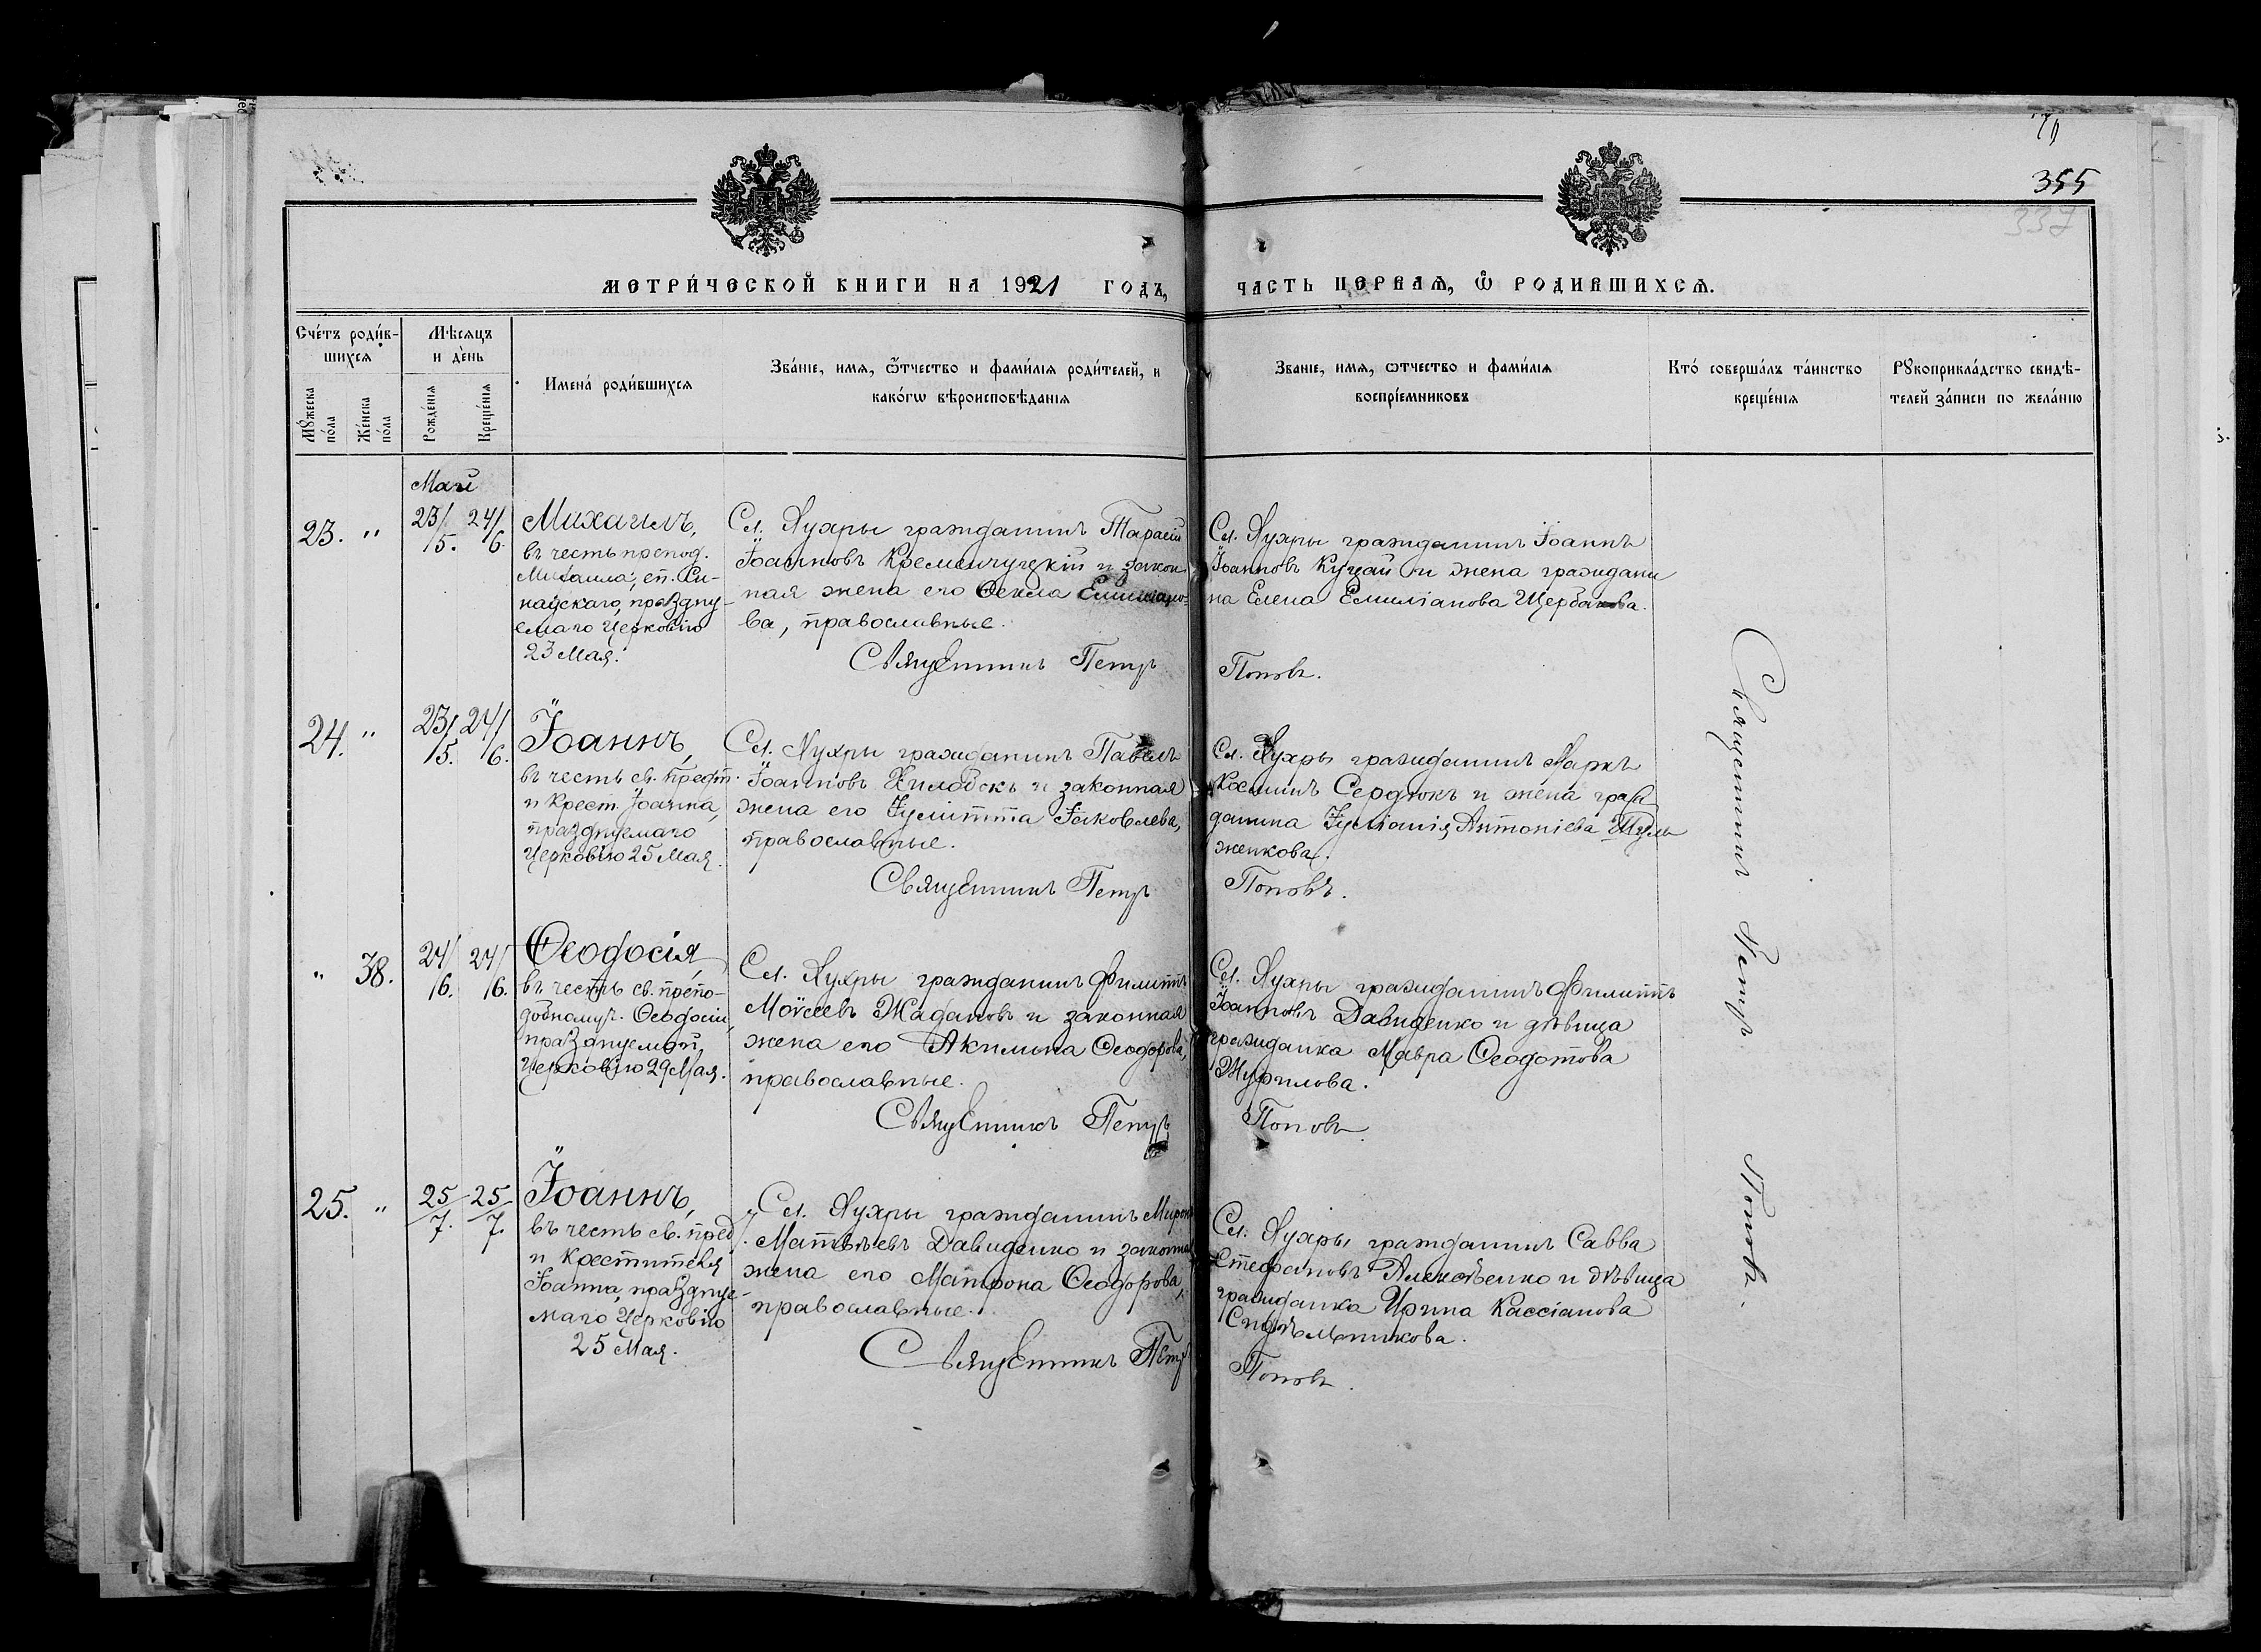 70
355
337
МЕТРИ́ЧЕСКОЙ КНИГИ НА 1921 ГОДЪ,
ЧАСТЬ ПЕРВАѦ, Ѡ҆ РОДИВШИХСѦ.
Сче́тъ роди́в-
шихсѧ
Мѣ́сѧцъ
и де́нь
Имена́ роди́вшихсѧ
Зва́нїе, имѧ, ѻ҆́тчество и фами́лїѧ роди́телей, и
како́гѡ вѣроисповѣ́данїѧ
Званїе, имѧ, ѡтчество и фами́лїѧ
воспрїе́мниковъ
Кто́ соверша́лъ та́инство
креще́нїѧ
Рꙋкоприкла́дство свидѣ́-
телей за́писи по жела́нїю
Мꙋ́жеска
по́ла
Же́нска
по́ла
Рожде́нїѧ
Креще́нїѧ
Май
23. "
23/5. 24/6.
Михаилъ,
въ честь препод.
Михаила, еп. Си-
найскаго, праздну-
емаго Церковію
23 Мая.
Сл. Хухры гражданинъ Тарасій
Іоанновъ Кременчуцкій и закон
ная жена его Ѳекла Емиліано-
ва, православные.
Священникъ Петръ
Сл. Хухры гражданинъ Іоаннъ
Іоанновъ Куцай и жена граждани
на Елена Емиліанова Щербакова.
Поповъ.
24. "
23/5. 24/6.
Іоаннъ,
въ честь св. Предт.
и Крест. Іоанна,
празднуемаго
Церковію 25 Мая.
Сл. Хухры гражданинъ Павелъ
Іоанновъ и законная
жена его Іулитта Іаковлева,
православные.
Священникъ Петръ
Сл. Хухры гражданинъ Маркъ
Косминъ Сердюкъ и жена граж
данина Іуліанія Антоніева Шуль
женкова.
Поповъ.
" 38.
24/6. 24/6.
Ѳеодосія,
въ честь св. препо-
добномуч. Ѳеодосіи,
празднуемой
Церковію 29 Мая.
Сл. Хухры гражданинъ Филиппъ
Моѵсеевъ Жадановъ и законная
жена его Акилина Ѳеодорова,
православные.
Священникъ Петръ
Сл. Хухры гражданинъ Филиппъ
Іоанновъ Давиденко и дѣвица
гражданка Мавра Ѳеодотова
Журилова.
Поповъ.
25. "
25/7. 25/7.
Іоаннъ,
въ честь св. пред
и Крестителя
Іоанна, праздну-
емаго Церковію
25 Мая.
Сл. Хухры гражданинъ Миронъ
Матѳеевъ Давиденко и законная
жена его Матрона Ѳеодорова,
православные.
Священникъ Петръ
Сл. Хухры гражданинъ Савва
Стефановъ Алексѣенко и дѣвица
гражданка Ирина Кассіанова
Поповъ.
Священникъ Петръ Поповъ.